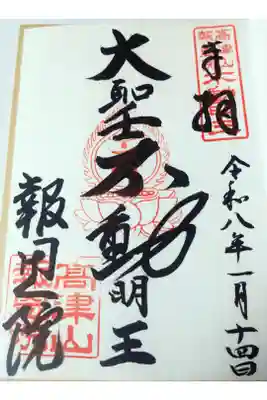 奉拝
令和八年一月十四日
大聖不動明王
報恩院
高津山